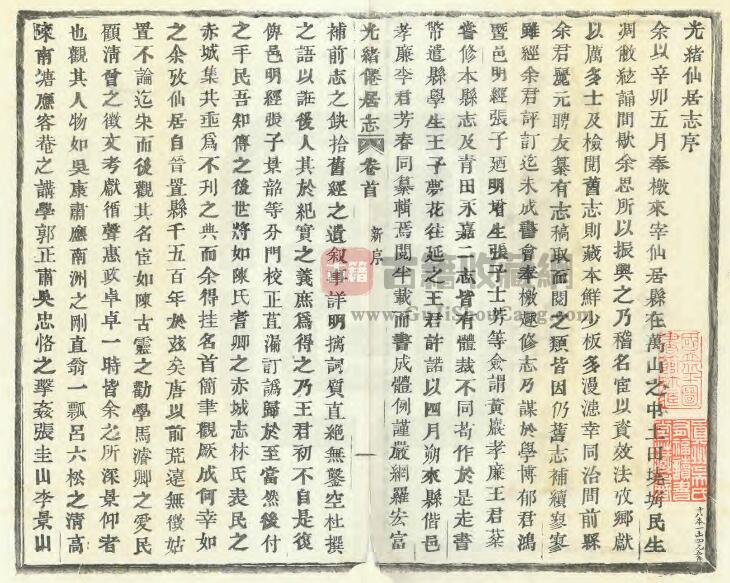 光緒仙居志序
余以辛卯五月奉檄來宰仙居縣在萬山之中土田塉瘠民生
凋敝絃誦間歇余思所以振興之乃稽名宦以資效法攷鄉獻
以厲多士及檢閱舊志則藏本鮮少板多漫漶幸同治間前縣
余君麗元聘友纂有志稿取而閱之類皆因仍舊志補續寥寥
雖經余君評訂迄未成書會奉檄趣修志乃謀於學博郁君鴻
暨邑明經張子廼明增生張子士芳等僉謂黃巖孝廉王君棻
嘗修本縣志及青田永嘉二志皆有體裁不同苟作於是走書
幣遣縣學生王子夢花往延之王君許諾以四月朔來縣偕邑
孝廉李君芳春同纂輯焉閱半載而書成體例謹嚴網羅宏富
光緒僊居志
卷首
新序
一
補前志之缺拾舊經之遺敘事詳明摛詞質直絕無鑿空杜撰
之語以誑後人其於紀實之義庶為得之乃王君初不自是復
俾邑明經張子景韶等分門校正苴漏訂譌歸於至當然後付
之手民吾知傳之後世將如陳氏耆卿之赤城志林氏表民之
赤城集共垂爲不刊之典而余得挂名首簡聿觀厥成何幸如
之余攷仙居自晉置縣千五百年於茲矣唐以前荒遠無徵姑
置不論迄宋而後觀其名宦如陳古靈之勸學馬濬卿之愛民
顧清曾之徵文考獻循聲惠政卓卓一時皆余之所深景仰者
也觀其人物如吳康肅應南洲之剛直翁一瓢呂六松之清高
陳南塘應客菴之講學郭正肅吳忠恪之擊姦張圭山李景山
古籍
古籍收藏網
www.GuJiShouCang.com